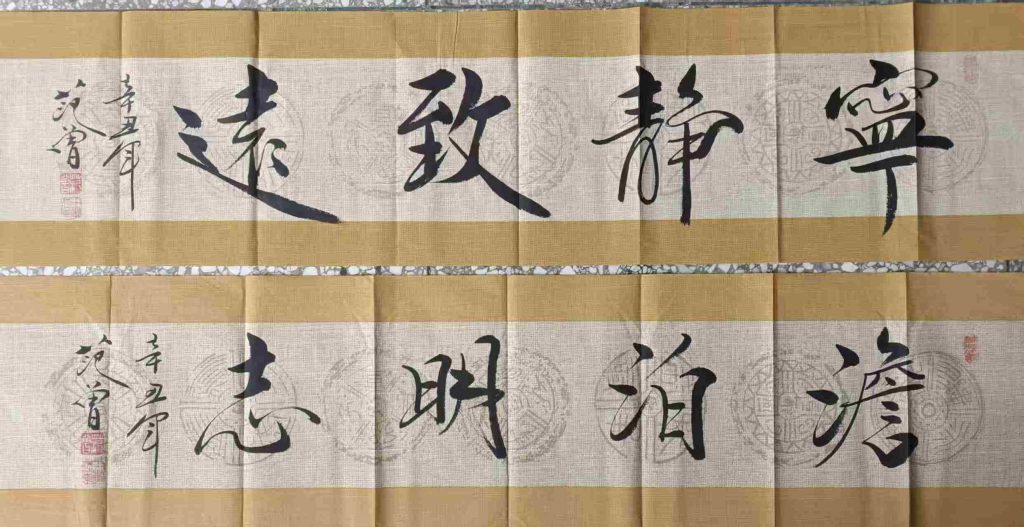 寧静致遠
辛丑年
范曾
澹泊明志
辛丑年
范曾